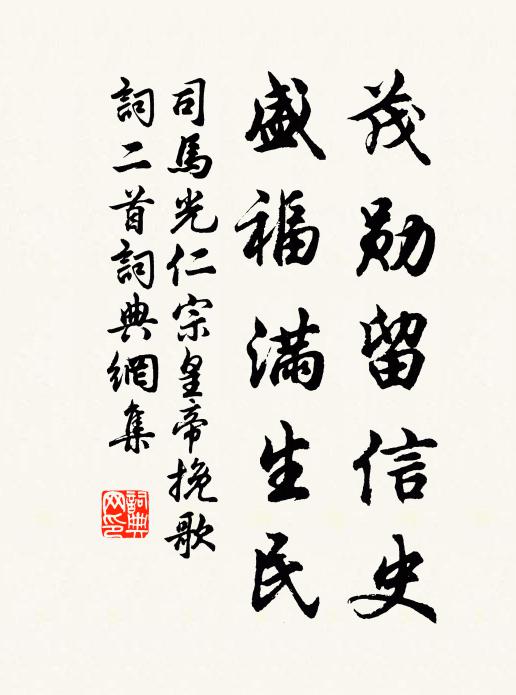 茂勋留信史
盛福满生民
司馬光仁宗皇帝挽歌
詞二首詞典網集
詞典
网印